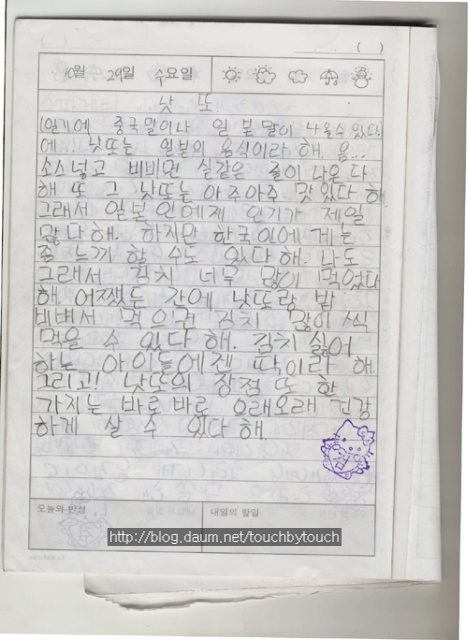 ( )
10월 29일 수요일
낫 또
(일기에 중국말이나 일본말이 나올수 있다)
에... 낫또는 일본의 음식이라 해. 음...
소스넣고 비비면 실같은 줄이 나온다
해 또 그 낫또는 아주아주 맛있다 해
그래서 일본인에게 인기가 제일
많다 해. 하지만 한국인에게는
좀 느끼 할 수도 있다 해. 나도
그래서 김치 너무 많이 먹었다
해. 어쨌든 간에 낫또랑 밥
비벼서 먹으면 김치 많이씩
먹을 수 있다 해. 김치 싫어
하는 아이들에겐 딱이라 해.
그리고! 낫또의 장점 또 한
가지는 바로바로 오래오래 건강
하게 살 수 있다 해.
오늘의 반성 내일의 할일
http://blog.daum.net/touchbytouch